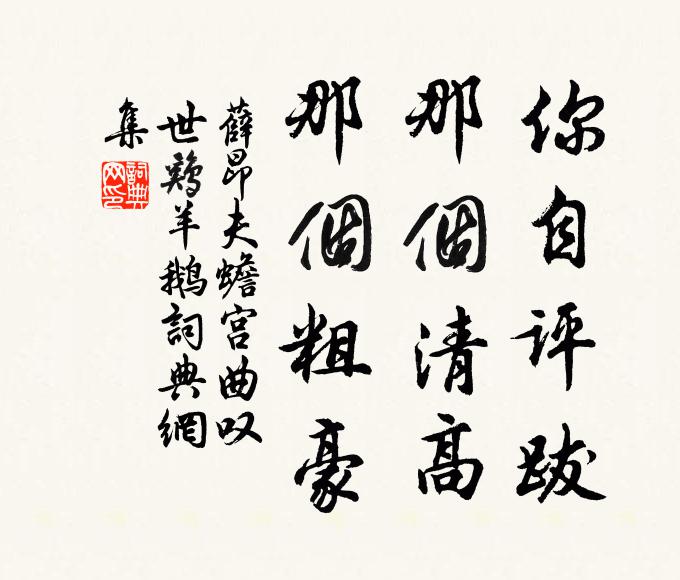 你自评跋
那個清高
那個粗豪
薛昂夫蟾宮曲叹
世鶏羊鹅詞典網
集
詞典
网印